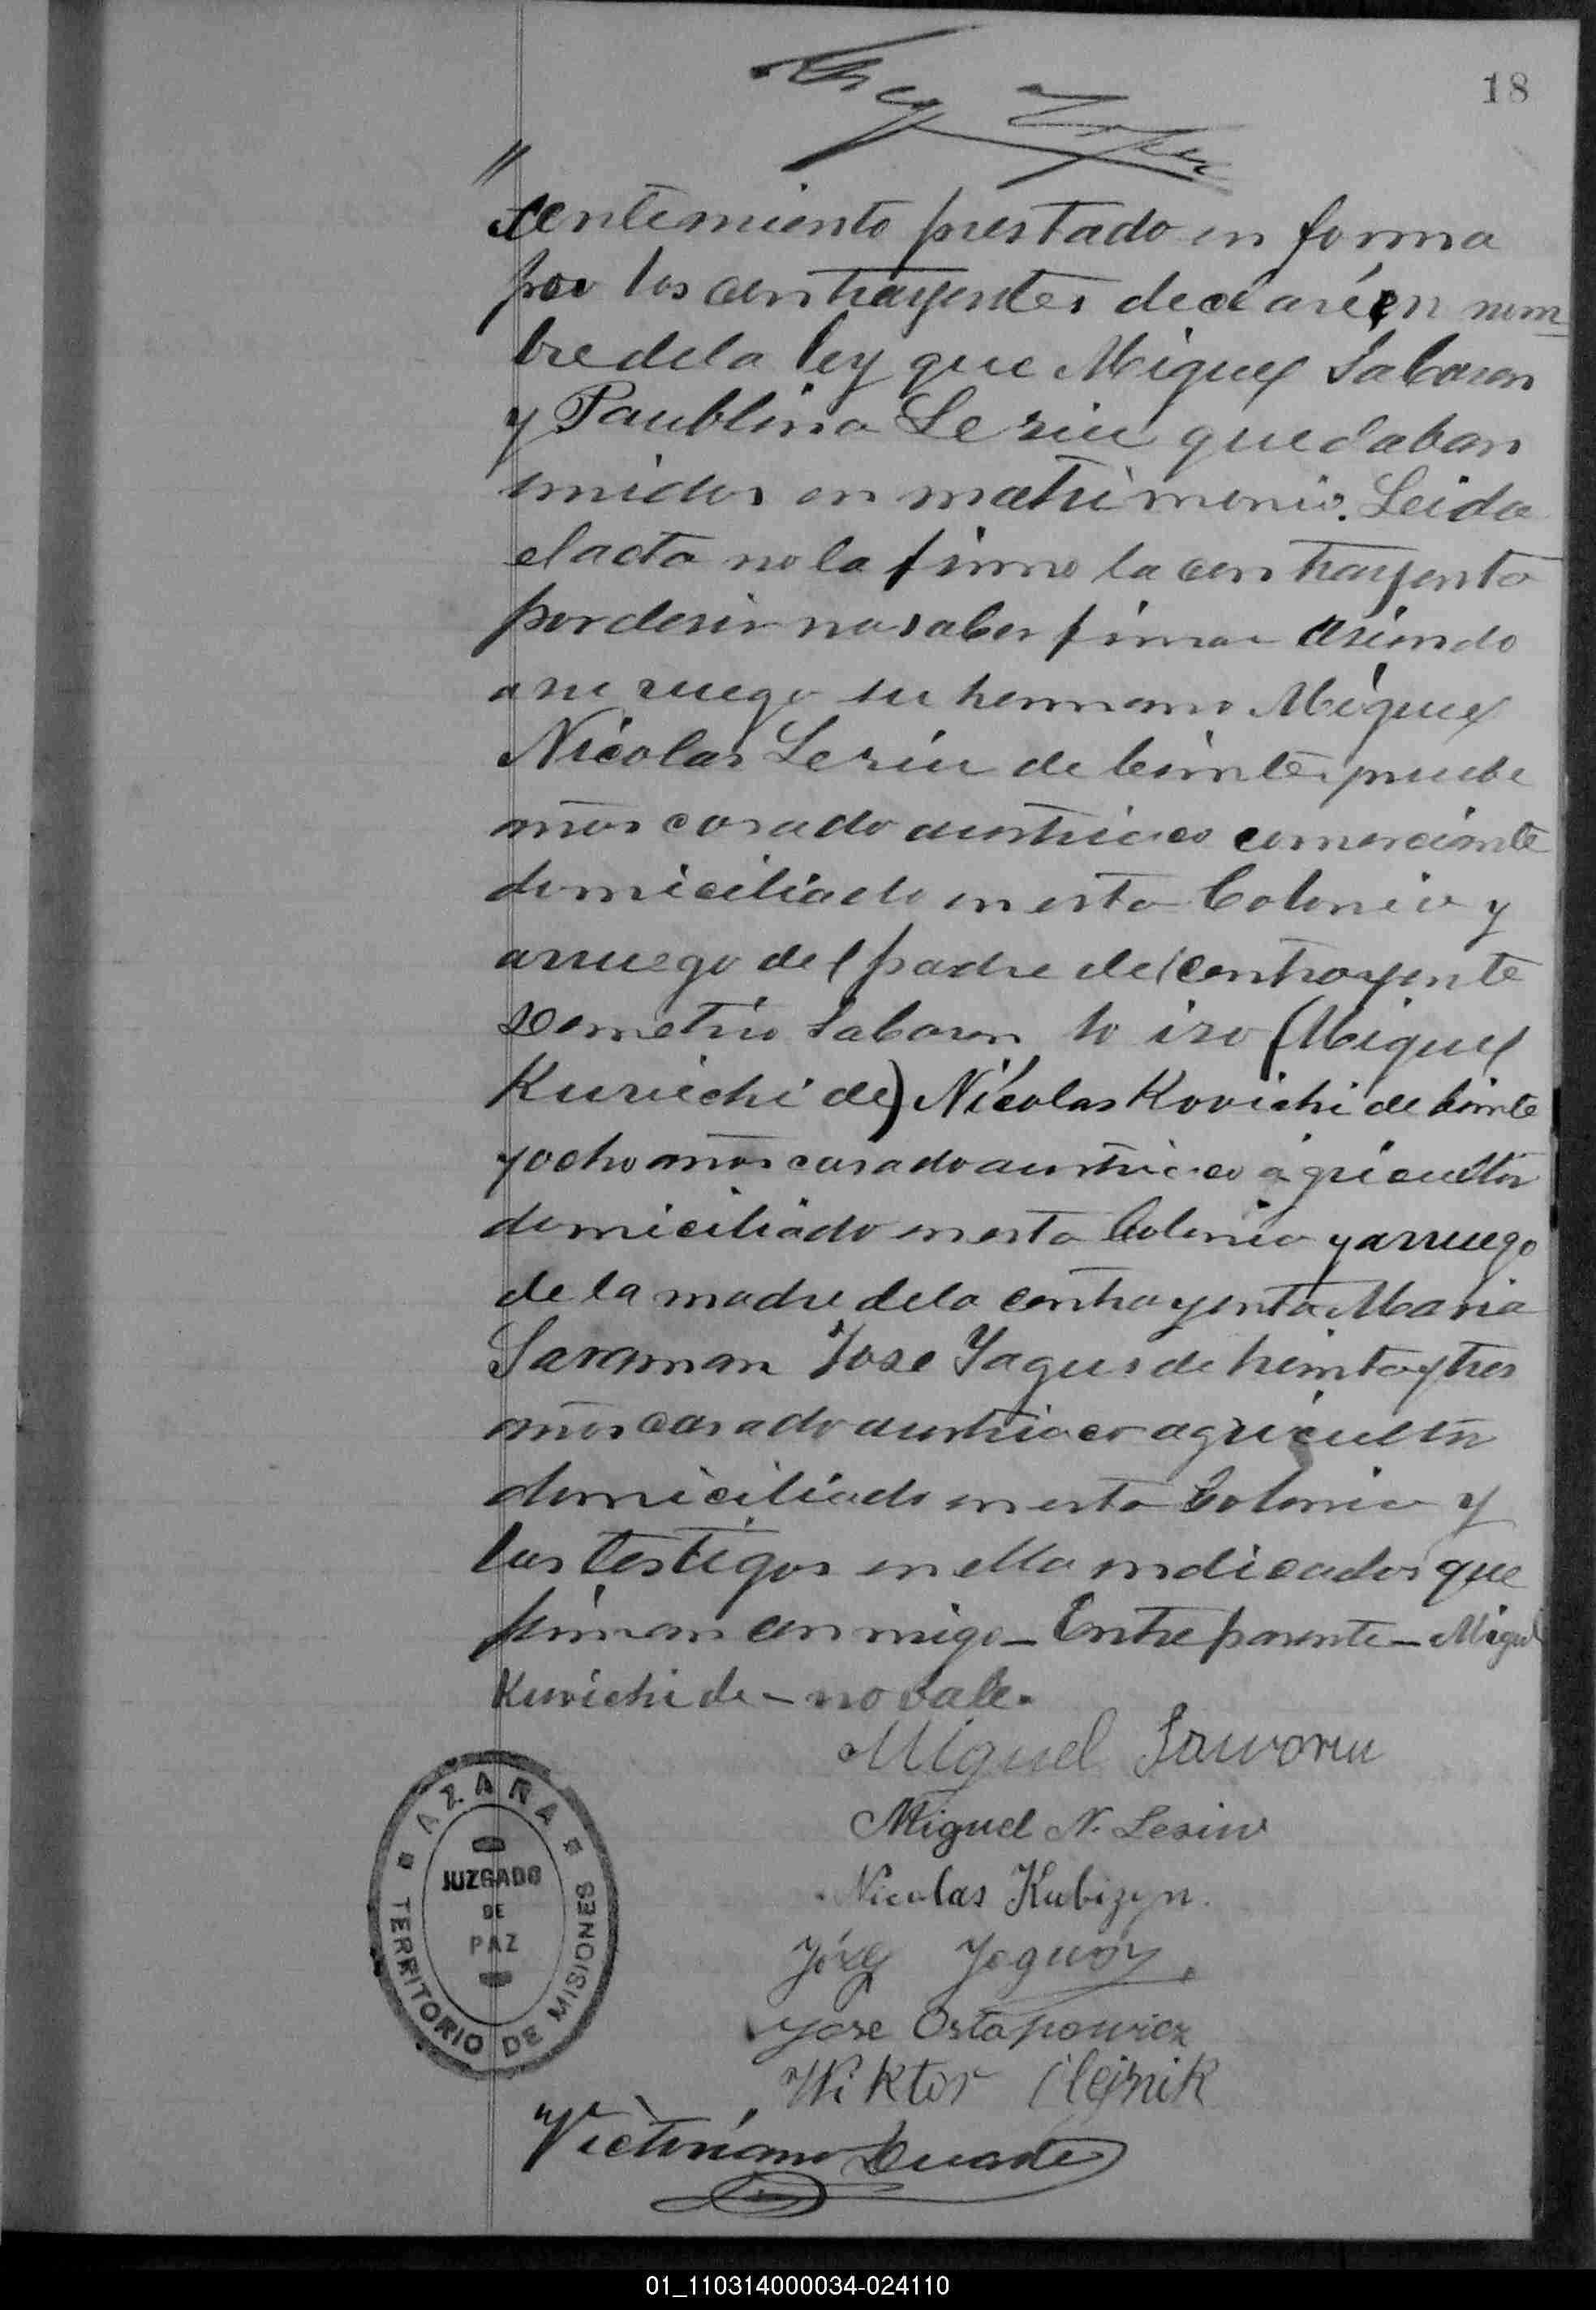 18
"
sentemiento prestado en forma
por los contrayentes declaré en nom
bre de la ley que Miguel Sabaren
y Paublina Lesiu quedaban
unidos en matrimonio. Leida
el acta no la firmo la contrayenta
por desir no saber firmar asiendo
a su ruego su hermano Miguel
Nicolas Lesiu de beinte y nuebe
años casado austriaco comerciante
domiciliado en esta Colonia y
arruego del padre del contrayente
Demetrio Sabaren lo iso (Miguel
Kurichi de) Nicolas Kovichi de beinte
y ocho años casado austriaco agricultor
domiciliado en esta Colonia y arruego
de la madre de la contrayenta Maria
Saraman Jose Yagus de treinta y tres
años casado austriaco agricultor
domiciliado en esta Colonia y
los testigos en ella indicados que
firman conmigo – Entre parente – Miguel
Kurichi de – no vale.
Miguel Sawaren
Miguel N. Lesiw
Nicolas Kubizyn.
Józef Jaguoz
Jose Ostapowicz
Wiktor Olejnik
Victoriano Duarte
AZARA
JUZGADO
DE
PAZ
TERRITORIO DE MISIONES
01_110314000034-024110